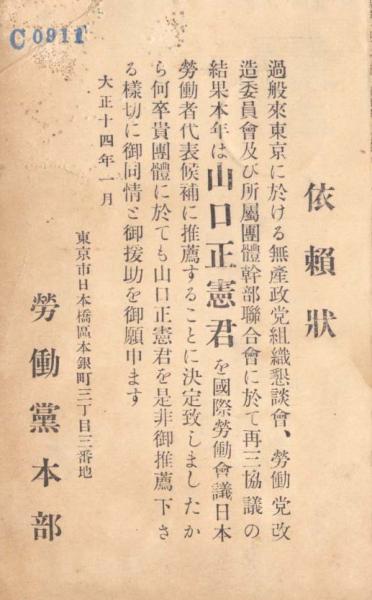 C 0911
依賴狀
過般來東京に於ける無產政党組織懇談會、勞働党改
造委員會及び所屬團體幹部聯合會に於て再三協議の
結果本年は山口正憲君を國際勞働會議日本
勞働者代表候補に推薦することに決定致しましたか
ら何卒貴團體に於ても山口正憲君を是非御推薦下さ
る樣切に御同情と御援助を御願申ます
大正十四年一月
東京市日本橋區本銀町三丁目三番地
勞働黨本部